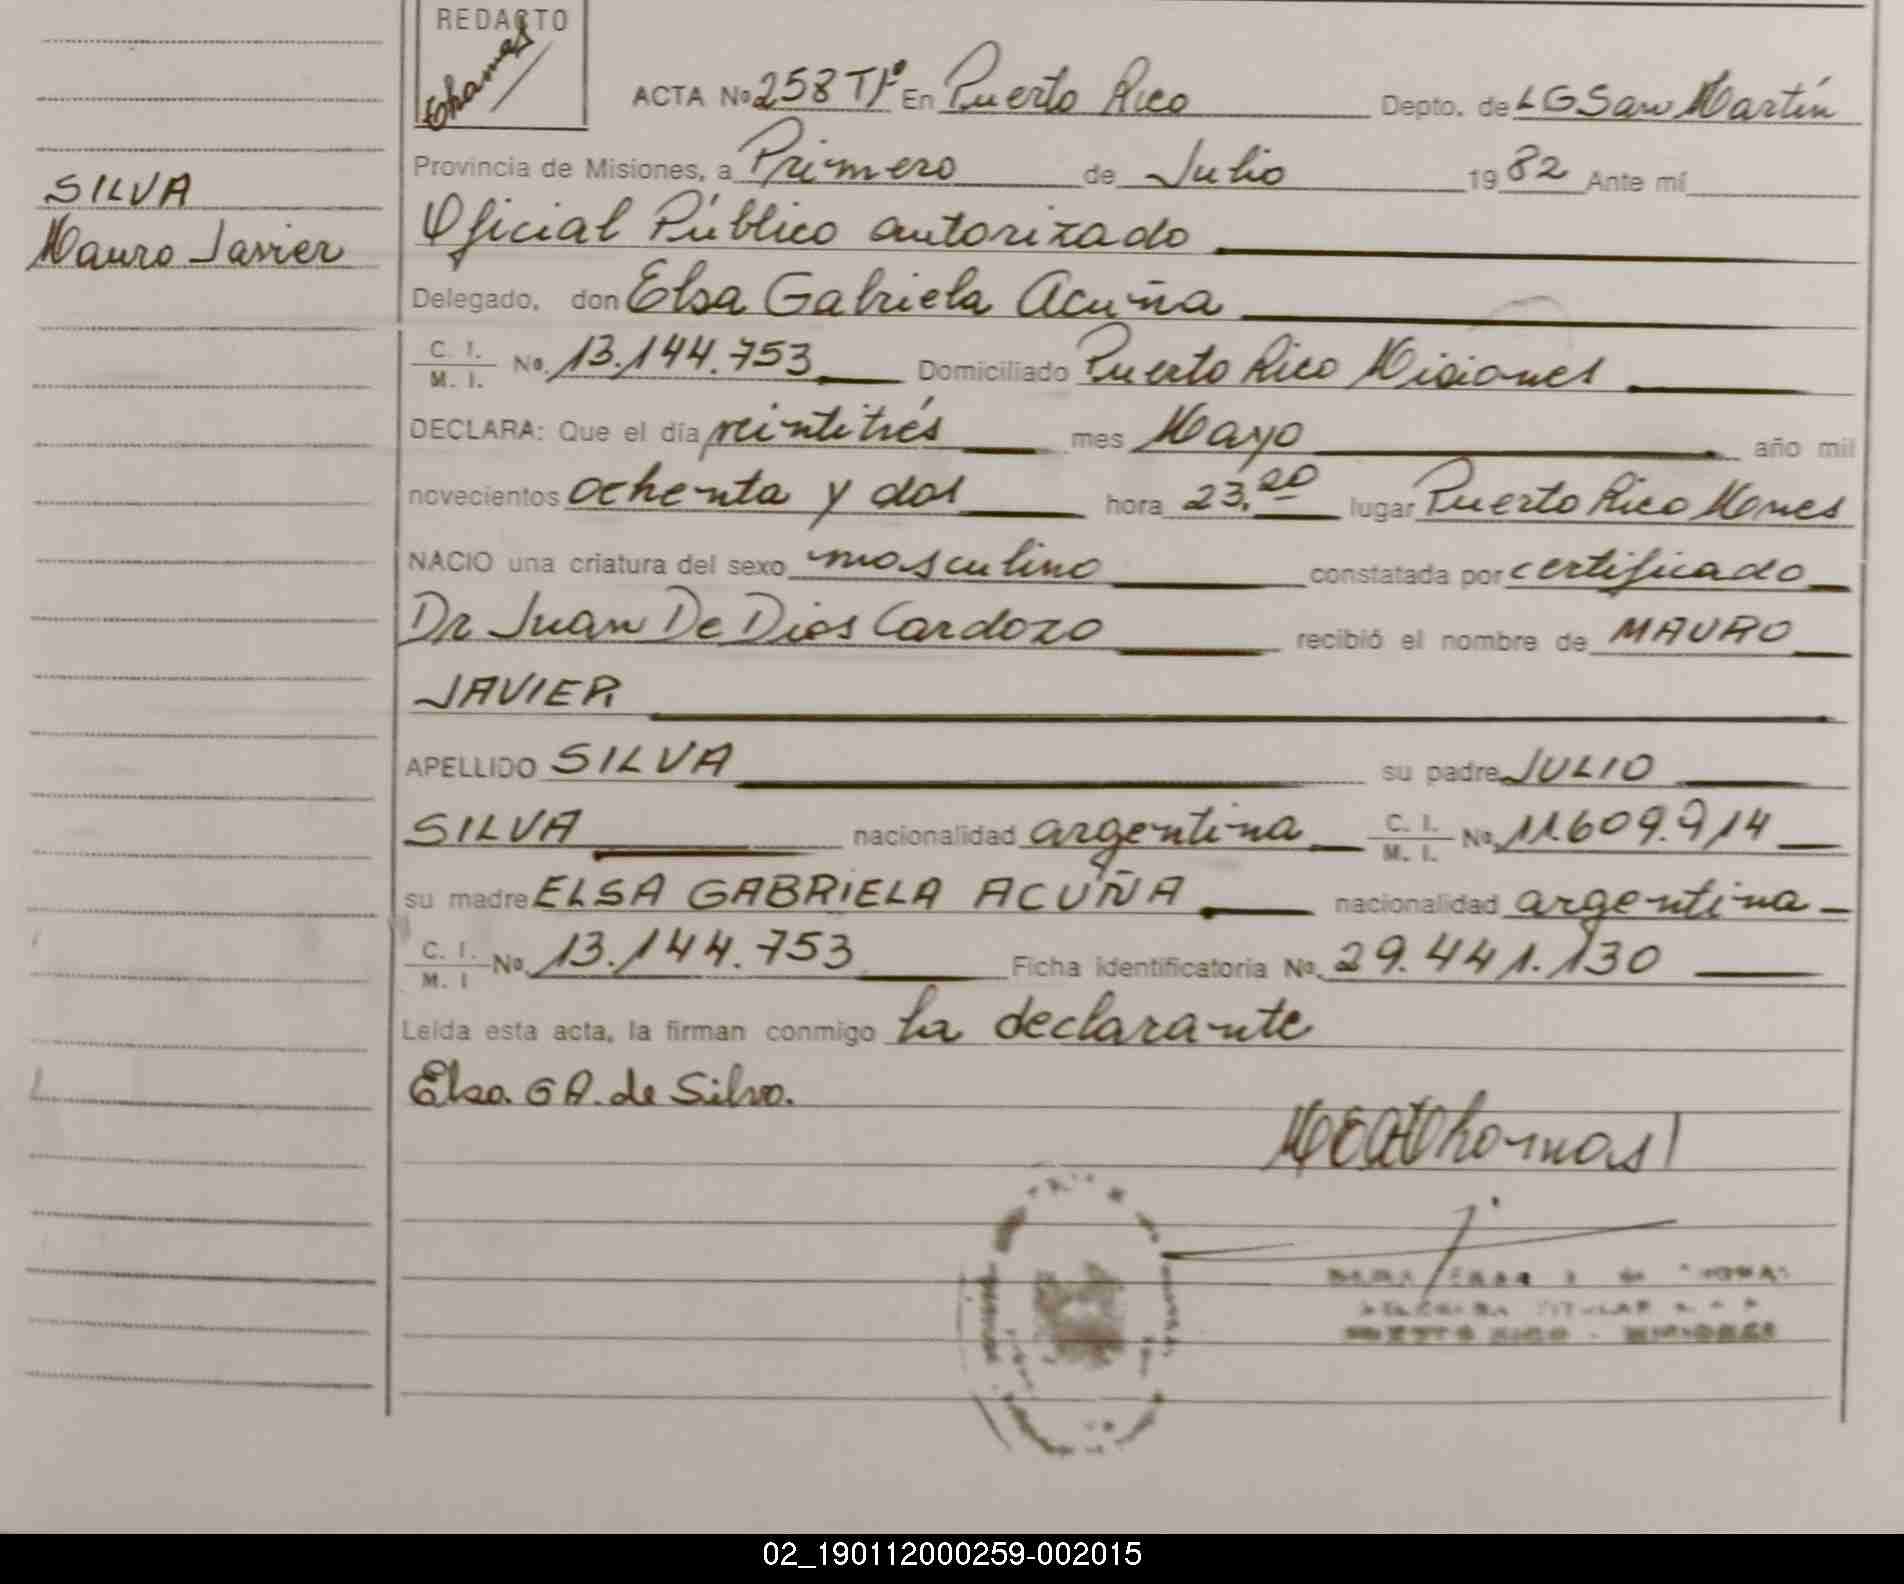 REDACTO
Thomas
ACTA No 258 Tº Iº En Puerto Rico Depto. de L G San Martín
Provincia de Misiones, a Primero de Julio 1982 Ante mí
SILVA
Oficial Público autorizado
Mauro Javier
Delegado, don Elsa Gabriela Acuña
C. I. / M. I. No. 13.144.753 Domiciliado Puerto Rico Misiones
DECLARA: Que el día veintitrés mes Mayo año mil
novecientos ochenta y dos hora 23.20 lugar Puerto Rico Mones
NACIO una criatura del sexo masculino constatada por certificado
Dr Juan De Dios Cardozo recibió el nombre de MAURO
JAVIER
APELLIDO SILVA su padre JULIO
SILVA nacionalidad argentina C. I. / M. I. No. 11.609.914
su madre ELSA GABRIELA ACUÑA nacionalidad argentina
C. I. / M. I No. 13.144.753 Ficha identificatoria No. 29.441.130
Leída esta acta, la firman conmigo la declarante
Elsa. G A. de Silva.
PUERTO RICO - MISIONES
02_190112000259-002015